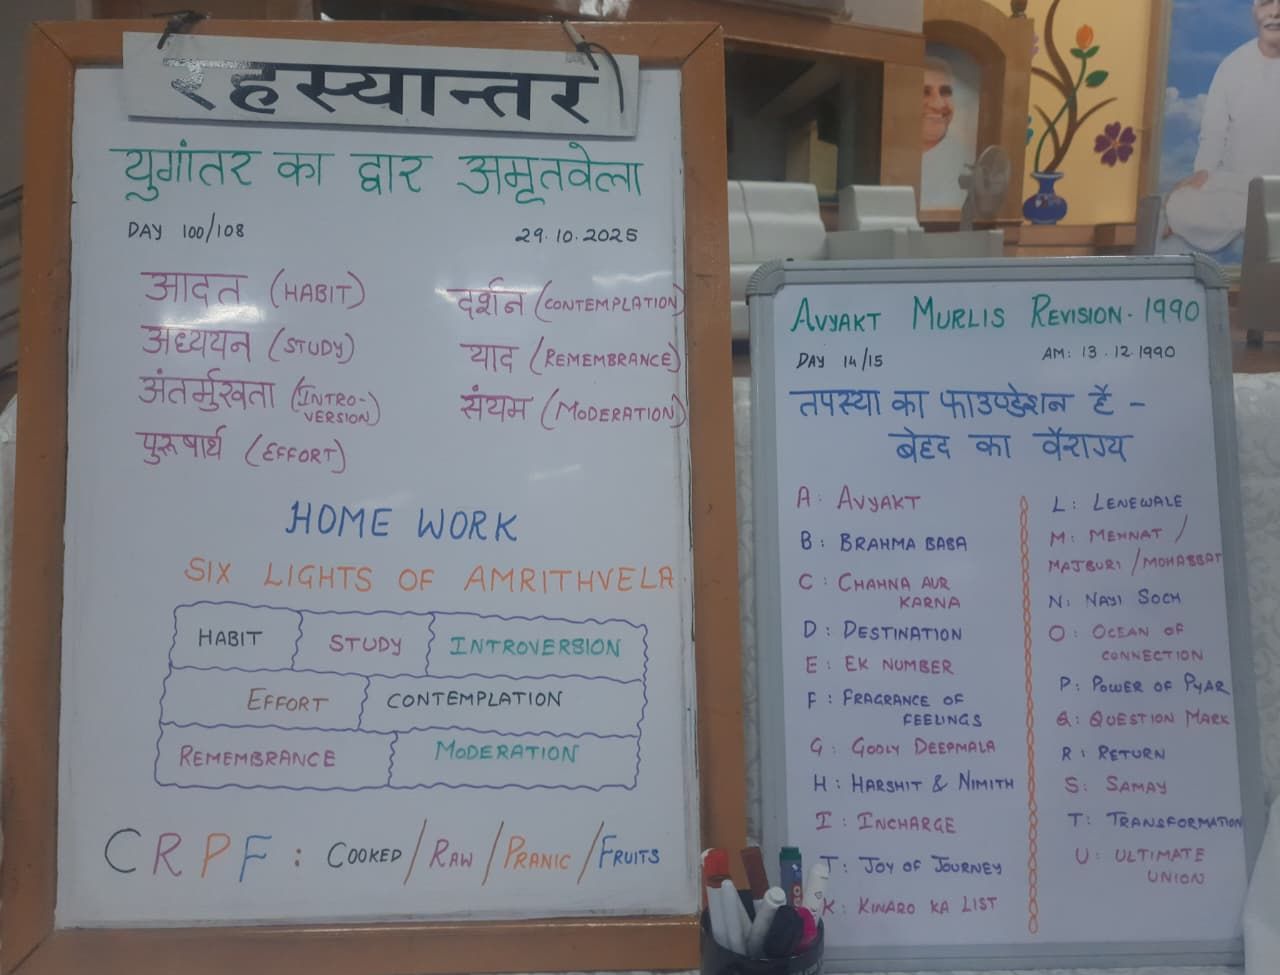 रहस्यान्तर
युगांतर का द्वार अमृतवेला
DAY 100/108
29.10.2025
आदत (HABIT)
अध्ययन (STUDY)
अंतर्मुखता (INTRO-
VERSION)
पुरूषार्थ (EFFORT)
दर्शन (CONTEMPLATION)
याद (REMEMBRANCE)
संयम (MODERATION)
HOME WORK
SIX LIGHTS OF AMRITHVELA
HABIT STUDY INTROVERSION
EFFORT CONTEMPLATION
REMEMBRANCE MODERATION
CRPF : COOKED/RAW/PRANIC/FRUITS
AVYAKT MURLIS REVISION - 1990
DAY 14/15
AM: 13.12.1990
तपस्या का फाउण्डेशन है -
बेहद का वैराग्य
A: AVYAKT
B: BRAHMA BABA
C: CHAHNA AUR
KARNA
D: DESTINATION
E: EK NUMBER
F: FRAGRANCE OF
FEELINGS
G: GODLY DEEPMALA
H: HARSHIT & NIMITH
I: INCHARGE
J: JOY OF JOURNEY
K: KINARO KA LIST
L: LENEWALE
M: MEHNAT /
MAJBURI / MOHABBAT
N: NAYI SOCH
O: OCEAN OF
CONNECTION
P: POWER OF PYAR
Q: QUESTION MARK
R: RETURN
S: SAMAY
T: TRANSFORMATION
U: ULTIMATE
UNION